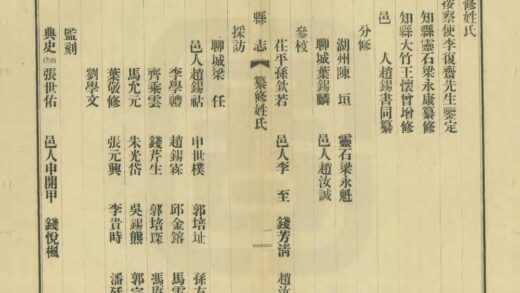 修姓氏
按察使李復齋先生鑒定
知縣靈石梁永康纂修
知縣大竹王懷曾增修
邑人趙錫書同纂
分修
湖州陳垣 靈石梁永魁
聊城葉錫麟 邑人趙汝誠
參校
茌平孫欽若 邑人李至 錢芳清 趙汝
縣志 纂修姓氏 一
採訪
聊城梁任
邑人趙錫祜 申世樸 郭培址 孫
李學禮 趙錫霖 邱金鎔 馬
齊乘雲 錢芹生 郭培琛 馮
馬允元 朱光岱 吳錫熊 郭
葉敬修 張元興 李貴時 潘
劉學文
監刻
典史 張世佑 邑人申開甲 錢悅楓